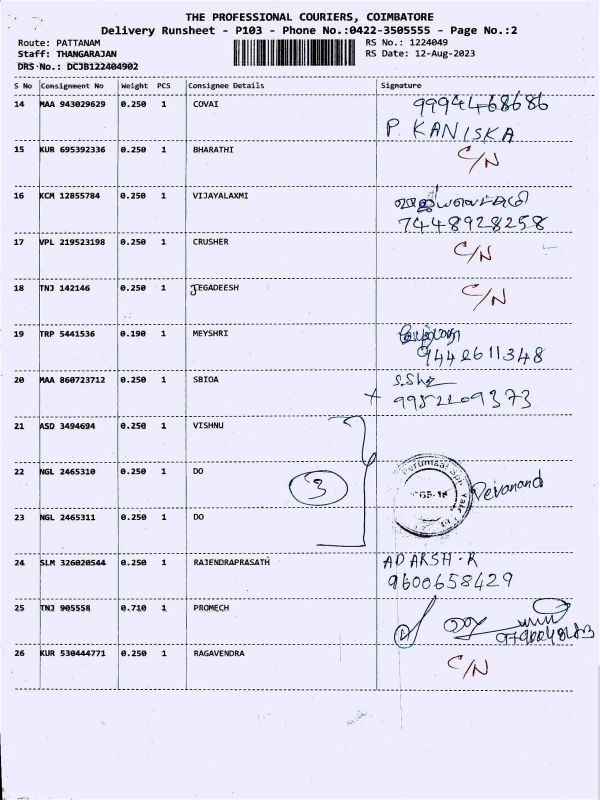 THE PROFESSIONAL COURIERS, COIMBATORE
Delivery Runsheet - P103 - Phone No.:0422-3505555 - Page No.:2
Route: PATTANAM RS No.: 1224049
Staff: THANGARAJAN RS Date: 12-Aug-2023
DRS No.: DCJB122404902
S No Consignment No Weight PCS Consignee Details Signature
14 MAA 943029629 0.250 1 COVAI 9994468686
P. KANISKA
15 KUR 695392336 0.250 1 BHARATHI C/N
16 KCM 12855784 0.250 1 VIJAYALAXMI
7448928258
17 VPL 219523198 0.250 1 CRUSHER C/N
18 TNJ 142146 0.250 1 JEGADEESH C/N
19 TRP 5441536 0.190 1 MEYSHRI
9442611348
20 MAA 860723712 0.250 1 SBIOA
9952209373
21 ASD 3494694 0.250 1 VISHNU
22 NGL 2465310 0.250 1 DO 3 Devanand
23 NGL 2465311 0.250 1 DO
24 SLM 326020544 0.250 1 RAJENDRAPRASATH ADARSH.R
9600658429
25 TNJ 905558 0.710 1 PROMECH
26 KUR 530444771 0.250 1 RAGAVENDRA C/N